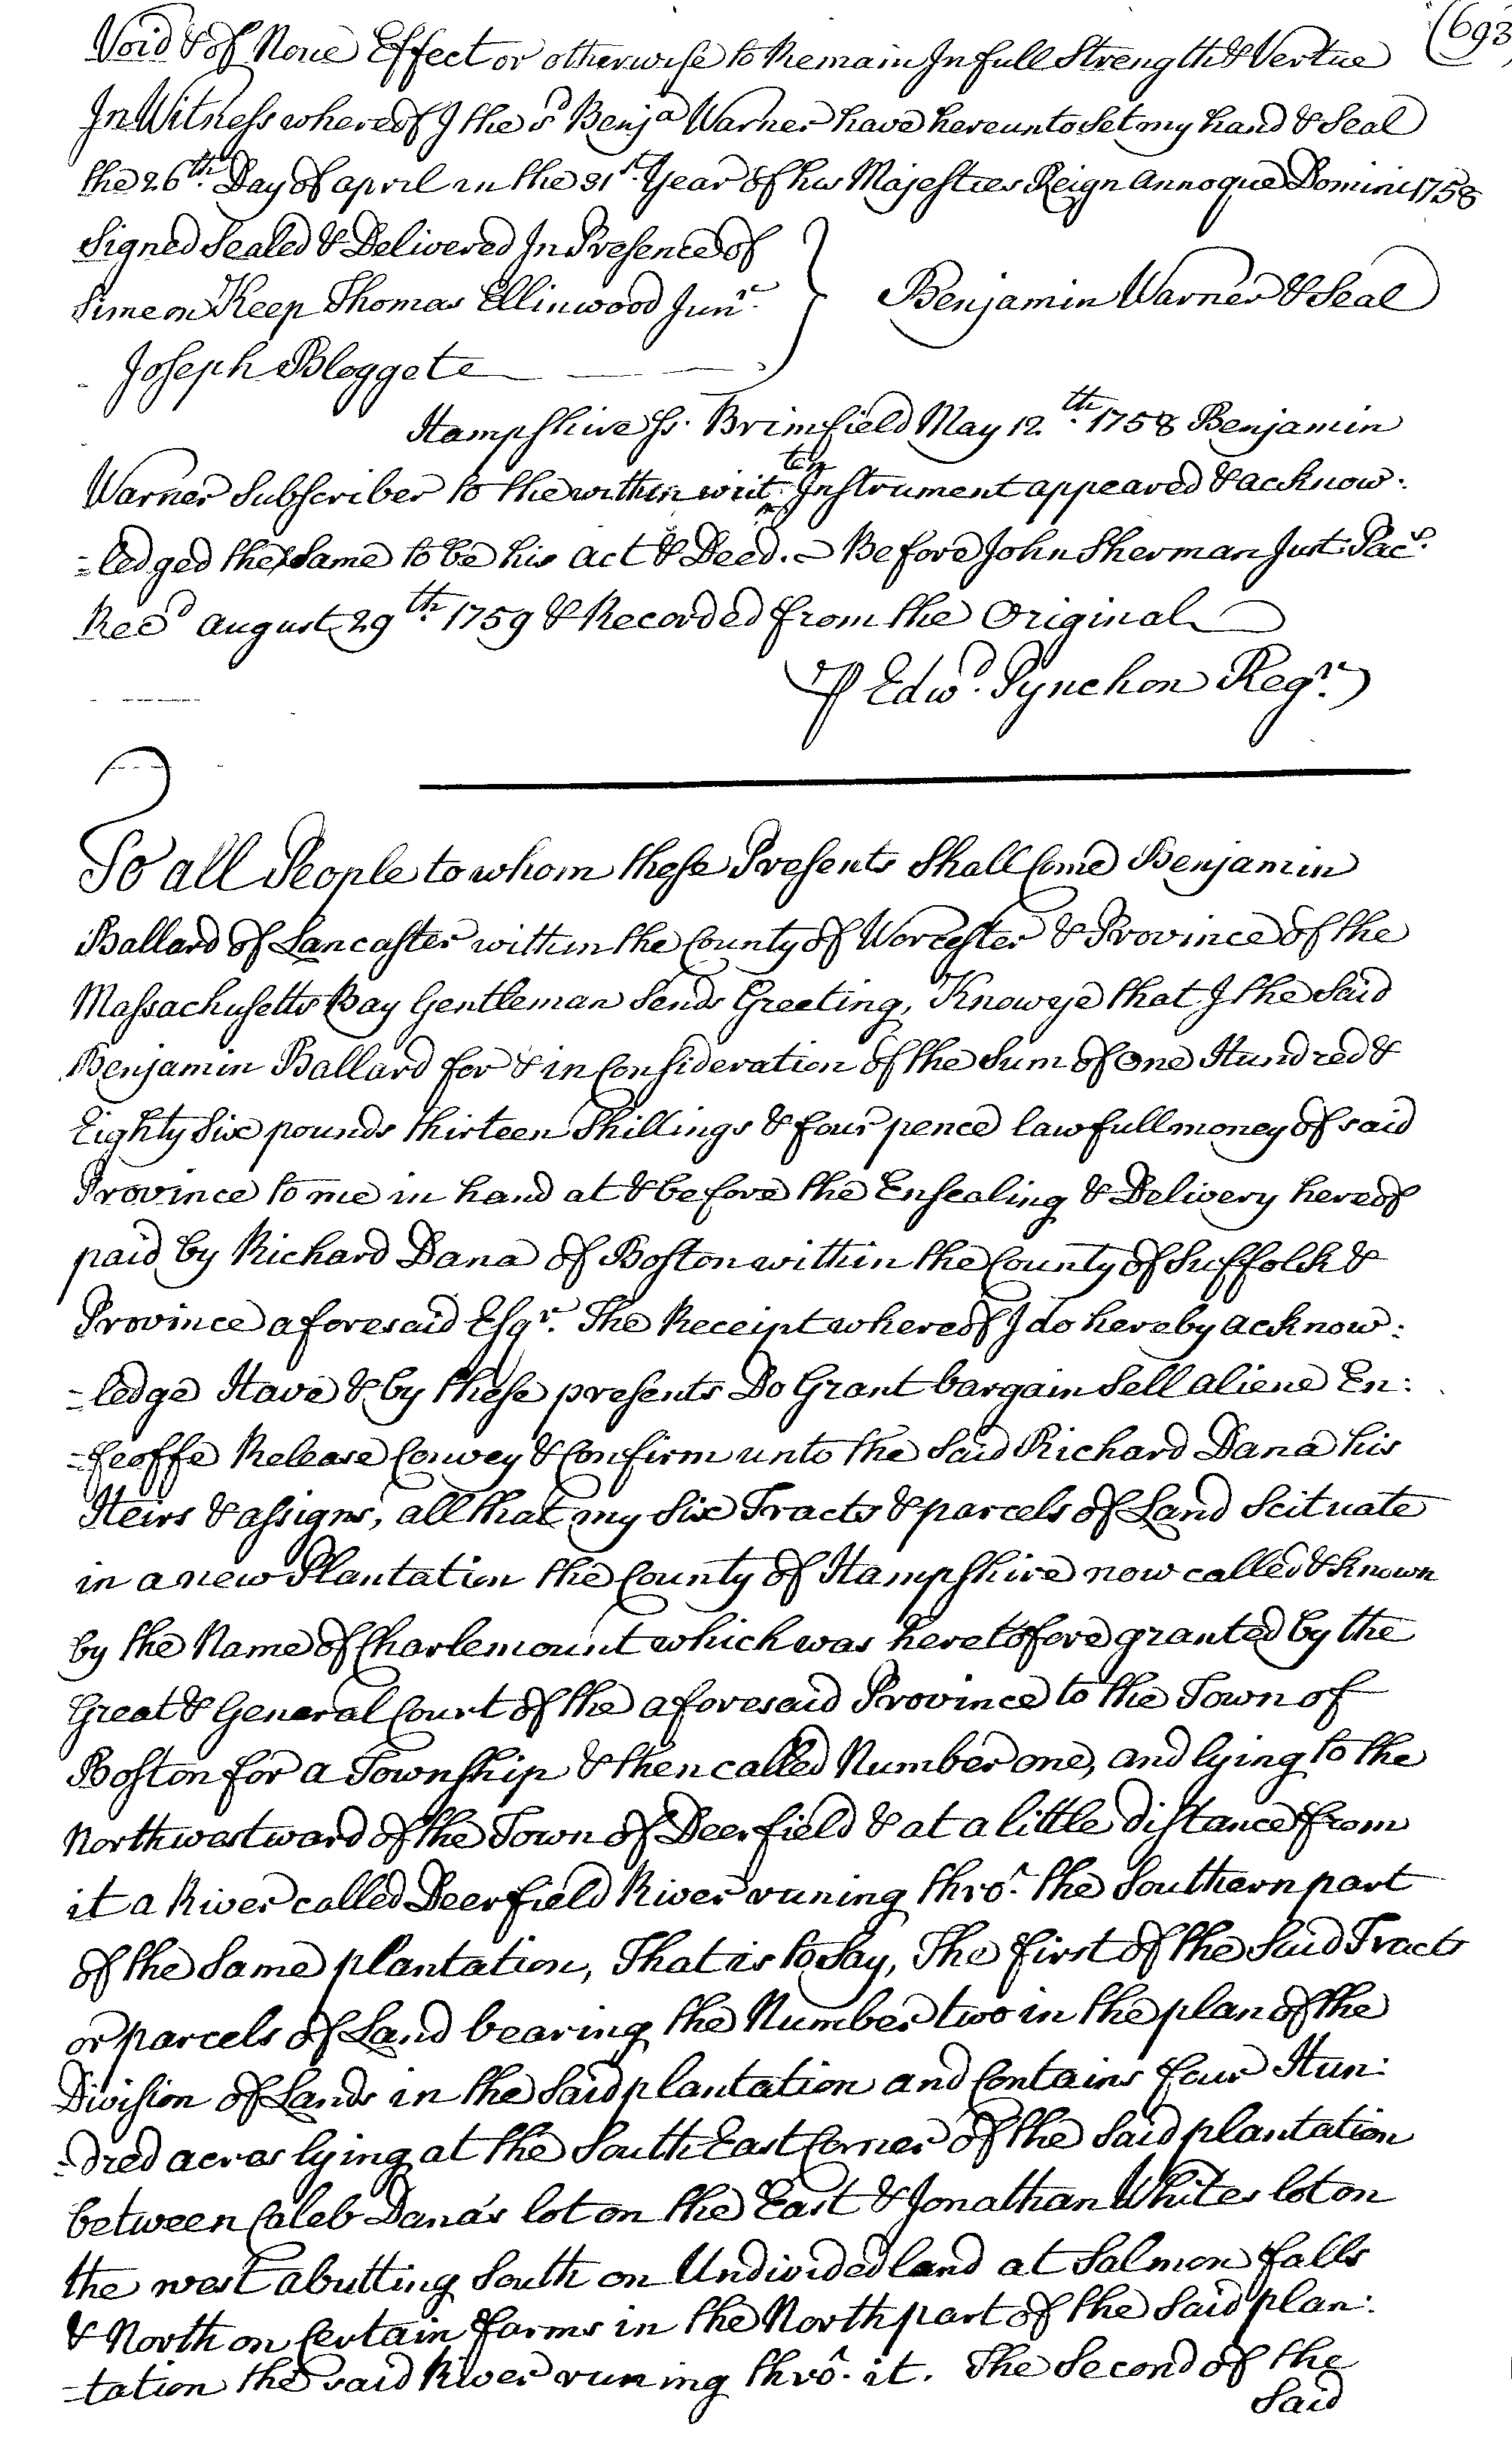 (693
Void & of None Effect or otherwise to Remain In full Strength & Vertue
In Witness whereof I the sd Benja Warner have hereunto Set my hand & Seal
the 26th. Day of april in the 31st. Year of his Majesties Reign annoque Domini 1758
Signed Sealed & Delivered In Presence of
Simeon Keep Thomas Ellinwood Junr. } Benjamin Warner & Seal
Joseph Bloggete
Hampshire Ss. Brimfield May 12th. 1758 Benjamin
Warner Subscriber to the within written Instrument appeared & acknow:
=ledged the Same to be his act & Deed. Before John Sherman Just. Pacs.
Recd august 29th. 1759 & Recorded from the Original
P Edwd. Pynchon Regr.
To all People to whom these Presents Shall Come Benjamin
Ballard of Lancaster within the County of Worcester & Province of the
Massachusetts Bay Gentleman Sends Greeting, Know ye that I the Said
Benjamin Ballard for & in Consideration of the Sum of One Hundred &
Eighty Six pounds thirteen Shillings & four pence lawfull money of said
Province to me in hand at & before the Ensealing & Delivery hereof
paid by Richard Dana of Boston within the County of Suffolck &
Province aforesaid Esqr. The Receipt whereof I do hereby acknow:
=ledge Have & by these presents Do Grant bargain Sell aliene En:
=feoffe Release Convey & Confirm unto the Said Richard Dana his
Heirs & assigns, all that my Six Tracts & parcels of Land Scituate
in a new Plantation the County of Hampshire now called & known
by the Name of Charlemount which was heretofore granted by the
Great & General Court of the aforesaid Province to the Town of
Boston for a Township & then called Number one, and lying to the
Northwestward of the Town of Deerfield & at a little distance from
it a River called Deerfield River runing thro'. the Southern part
of the Same plantation, That is to Say, The first of the Said Tracts
or parcels of Land bearing the Number two in the plan of the
Division of Lands in the Said plantation and Contains four Hun:
=dred acres lying at the South East Corner of the Said plantation
between Caleb Dana's lot on the East & Jonathan Whites lot on
the west abutting South on Undivided land at Salmon falls
& North on Certain farms in the North part of the Said plan:
=tation the said River runing thro'. it. The Second of the
Said